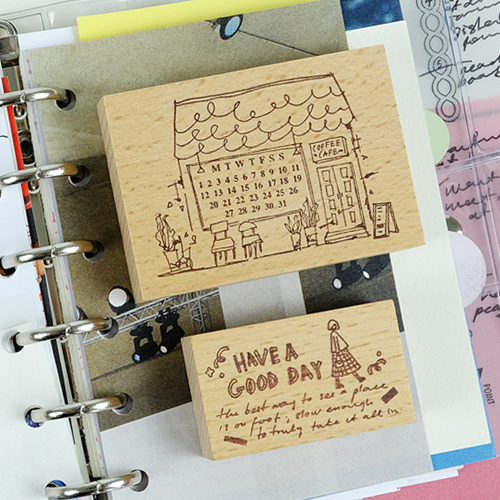 COFFEE
CAFE
M T W T F S S
1 2 3 4 5 6 7 8 9 10 11
12 13 14 15 16 17 18 19
20 21 22 23 24 25 26
27 28 29 30 31
HAVE A
GOOD DAY
the best way to see a place
is on foot, slow enough
to truly take it all in
POINT